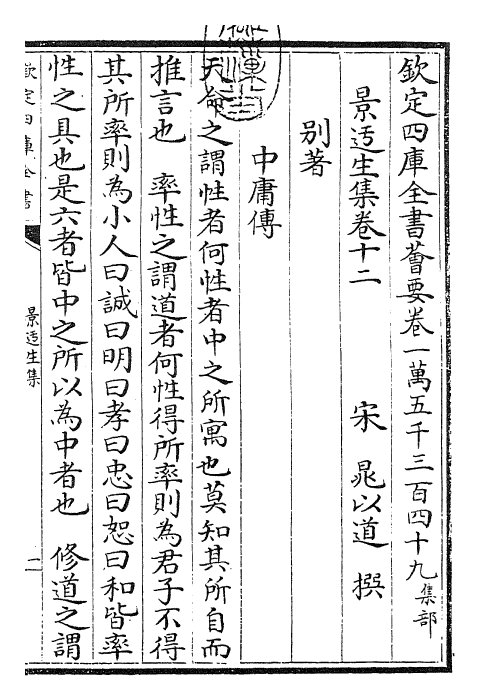 欽定四庫全書薈要卷一萬五千三百四十九集部
景迃生集卷十二　宋　晁以道　撰
別著
中庸傳
天命之謂性者何性者中之所寓也莫知其所自而
推言也　率性之謂道者何性得所率則為君子不得
其所率則為小人曰誠曰明曰孝曰忠曰恕曰和皆率
性之具也是六者皆中之所以為中者也　修道之謂
欽定四庫全書
景迃生集
一